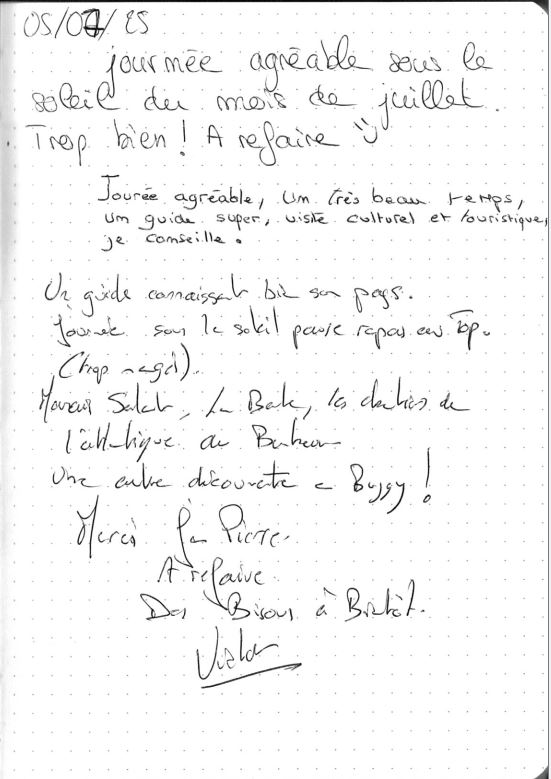 05/07/25
journée agréable sous le
soleil du mois de juillet.
Trop bien ! A refaire
Jourée agréable, un très beau temps,
un guide super, visite culturel et touristique,
je conseille.
Un guide connaissant bien son pays.
Journée sous le soleil pause repas au Top.
(trop mangé).
Marais Salant, La Baule, les
l'atlantique
Une autre découverte en Buggy !
Merci Jean Pierre.
A refaire
Des Bisous à Bientôt.